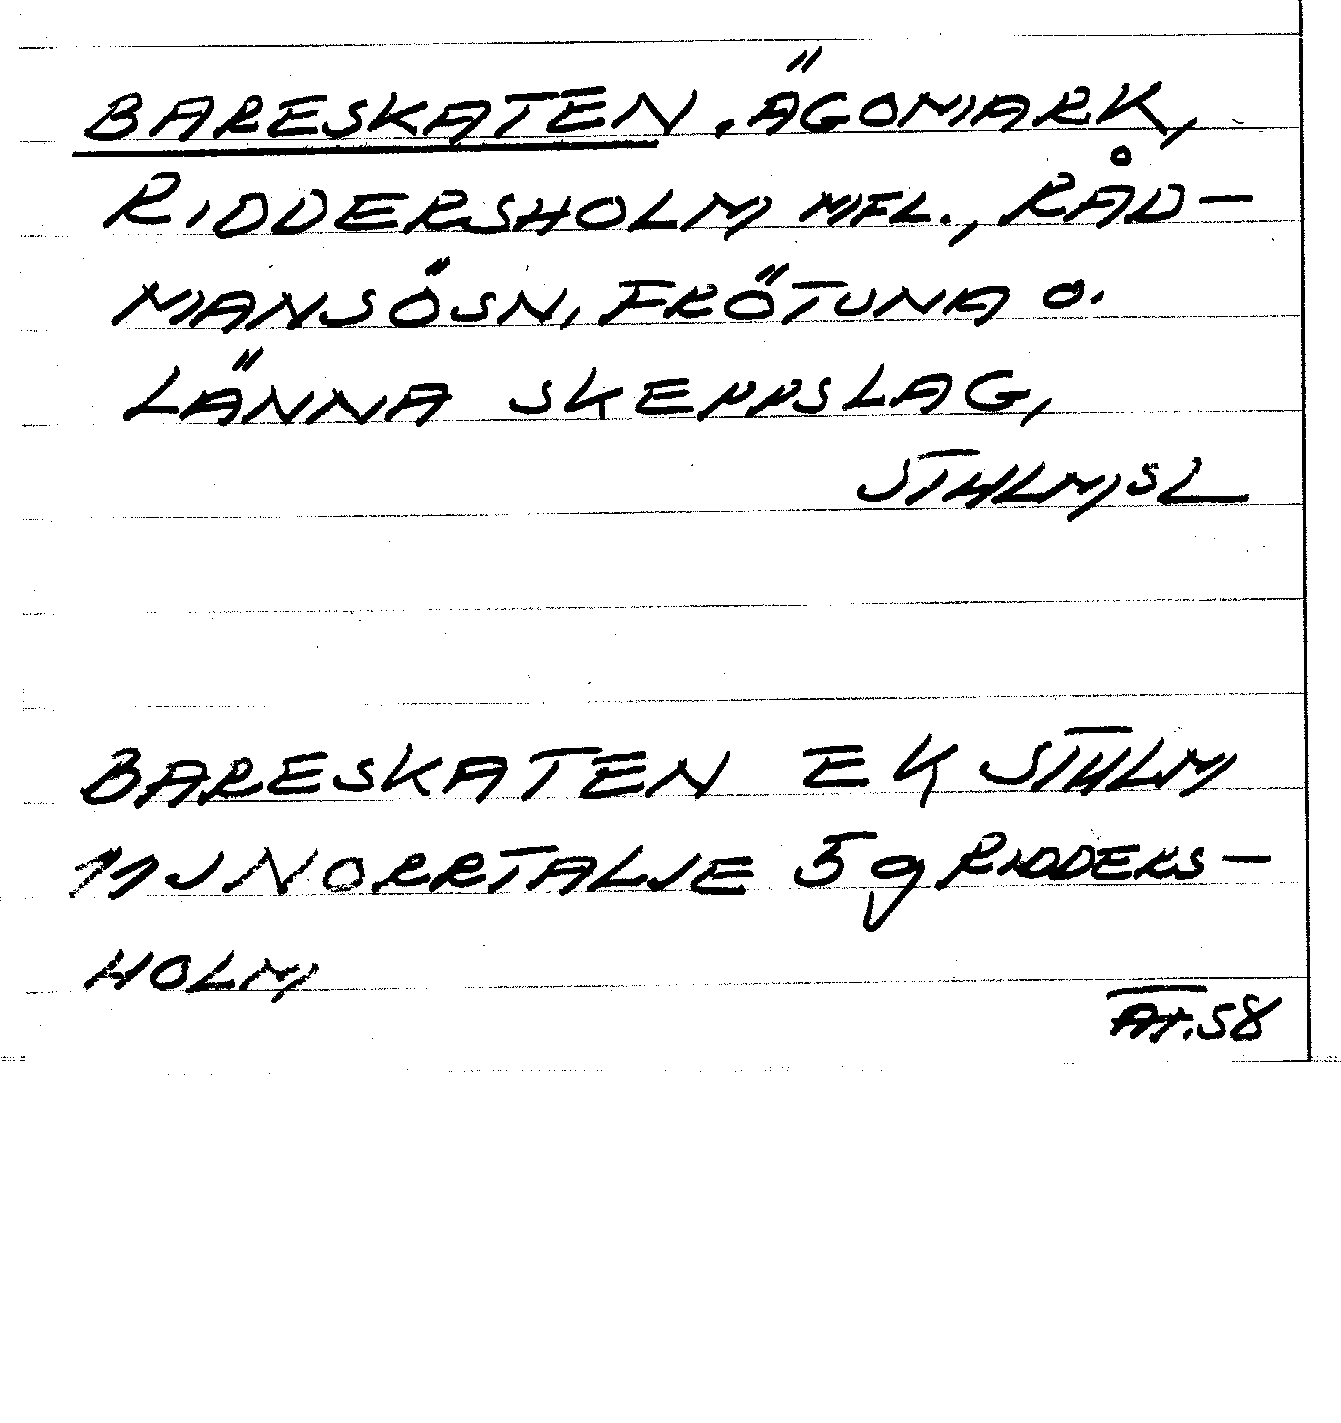 BARESKATEN, ÄGOMARK,
RIDDERSHOLM MFL., RÅD-
MANSÖSN, FRÖTUNA O.
LÄNNA SKEPPSLAG,
STHLMSL
BARESKATEN EK STHLM
11J NORRTALJE 5g RIDDERS-
HOLM
AH.58